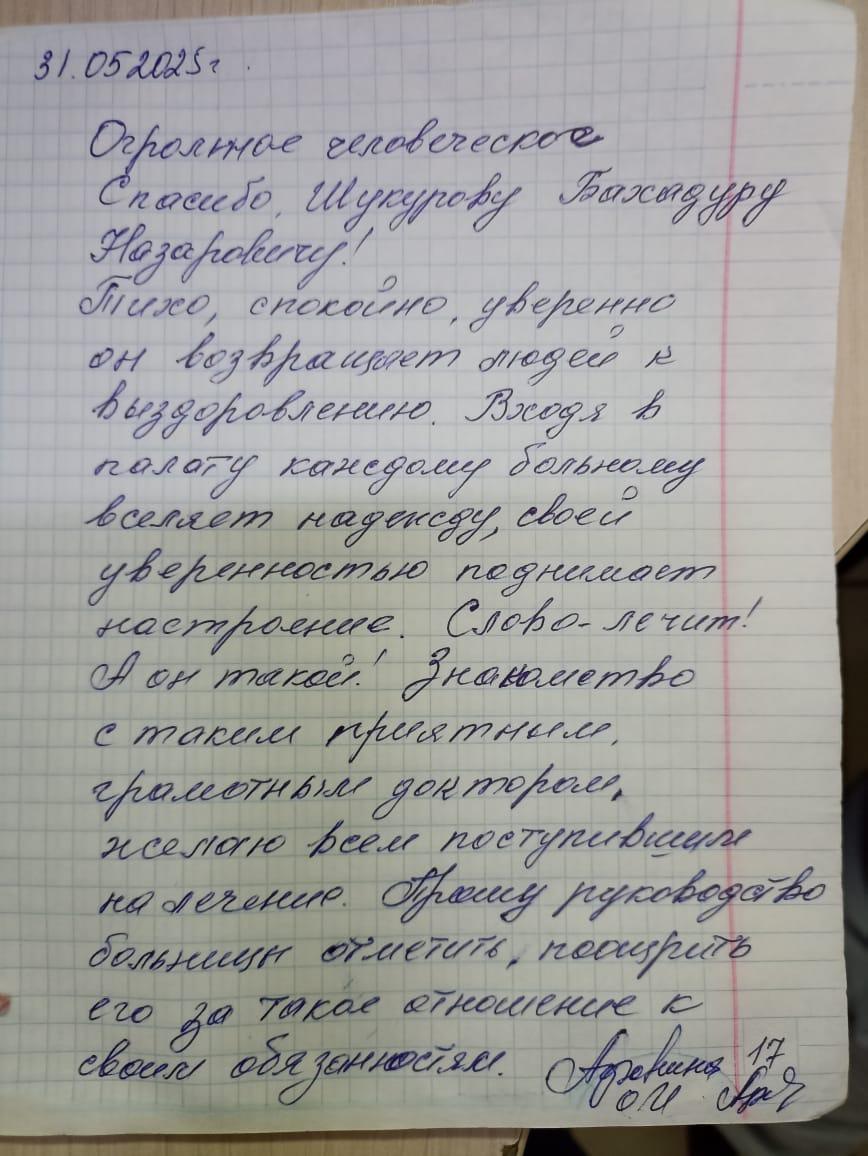 31.05 2025г.
Огромное человеческое
Спасибо, Шукурову Бахадуру
Назаровичу!
Тихо, спокойно, уверенно
он возвращает людей к
выздоровлению. Входя в
палату каждому больному
вселяет надежду, своей
уверенностью поднимает
настроение. Слово-лечит!
А он такой! Знакомство
с таким приятным,
грамотным доктором,
желаю всем поступившим
на лечение. Прошу руководство
больницы отметить, поощрить
его за такое отношение к
своим обязанностям.
17